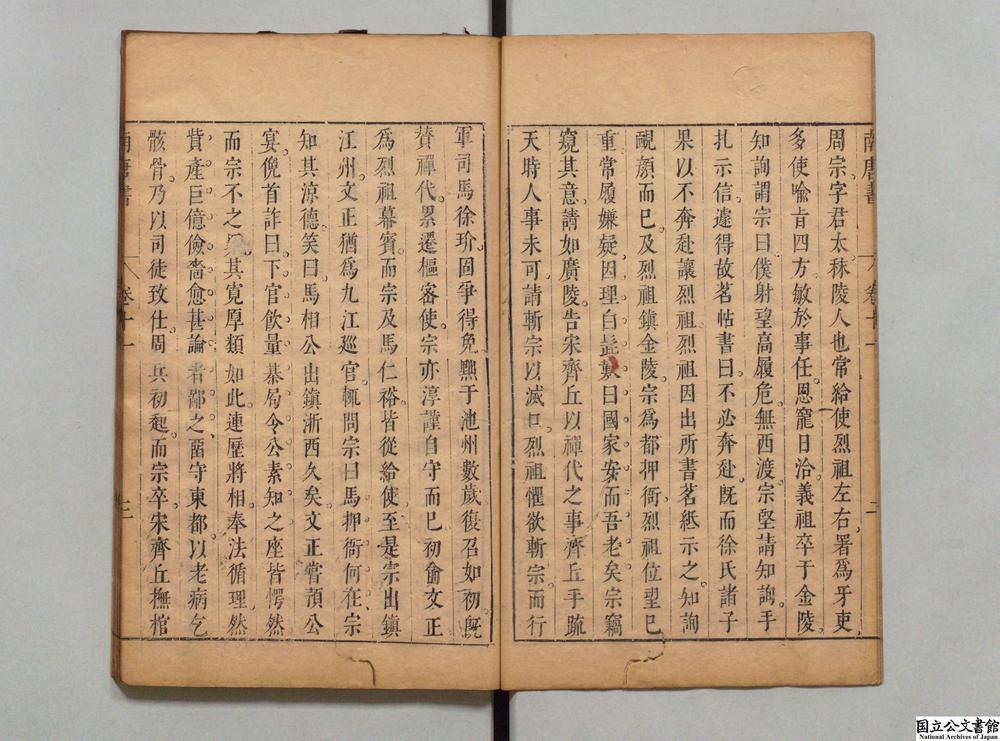 周宗。字君太。秣陵人也。常給使烈祖左右。署爲牙吏。
多使喻旨四方。敏於事任。恩寵日洽。義祖卒于金陵。
知詢謂宗曰。僕射望高履危。無西渡。宗堅請知詢。手
扎示信。遽得故茗帖書曰。不必奔赴。旣而徐氏諸子
果以不奔赴讓烈祖。烈祖因出所書茗紙示之。知詢
靦顔而已。及烈祖鎮金陵。宗爲都押衙。烈祖位望已
重。常履嫌疑。因理白髭歎曰。國家安而吾老矣。宗竊
窺其意。請如廣陵。告宋齊丘以禪代之事。齊丘手疏
天時人事未可。請斬宗以滅口。烈祖懼。欲斬宗。而行
軍司馬徐玠。固爭得免。黜于池州。數歲。復召如初。旣
賛禪代。累遷樞密使。宗亦淳謹自守而已。初俞文正
爲烈祖幕賓。而宗及馬仁裕皆從給使。至是宗出鎮
江州。文正猶爲九江廵官。輒問宗曰。馬押衙何在。宗
知其涼德。笑曰。馬相公出鎮浙西久矣。文正嘗預公
宴。俛首詐曰。下官飲量棊局。令公素知之。座皆愕然。
而宗不之其寛厚類如此。連歷將相。奉法循理。然
貲產巨億。儉嗇愈甚。論者鄙之。畱守東都。以老病乞
骸骨。乃以司徒致仕。周兵初起。而宗卒。宋齊丘撫棺
南唐書 卷十一 三